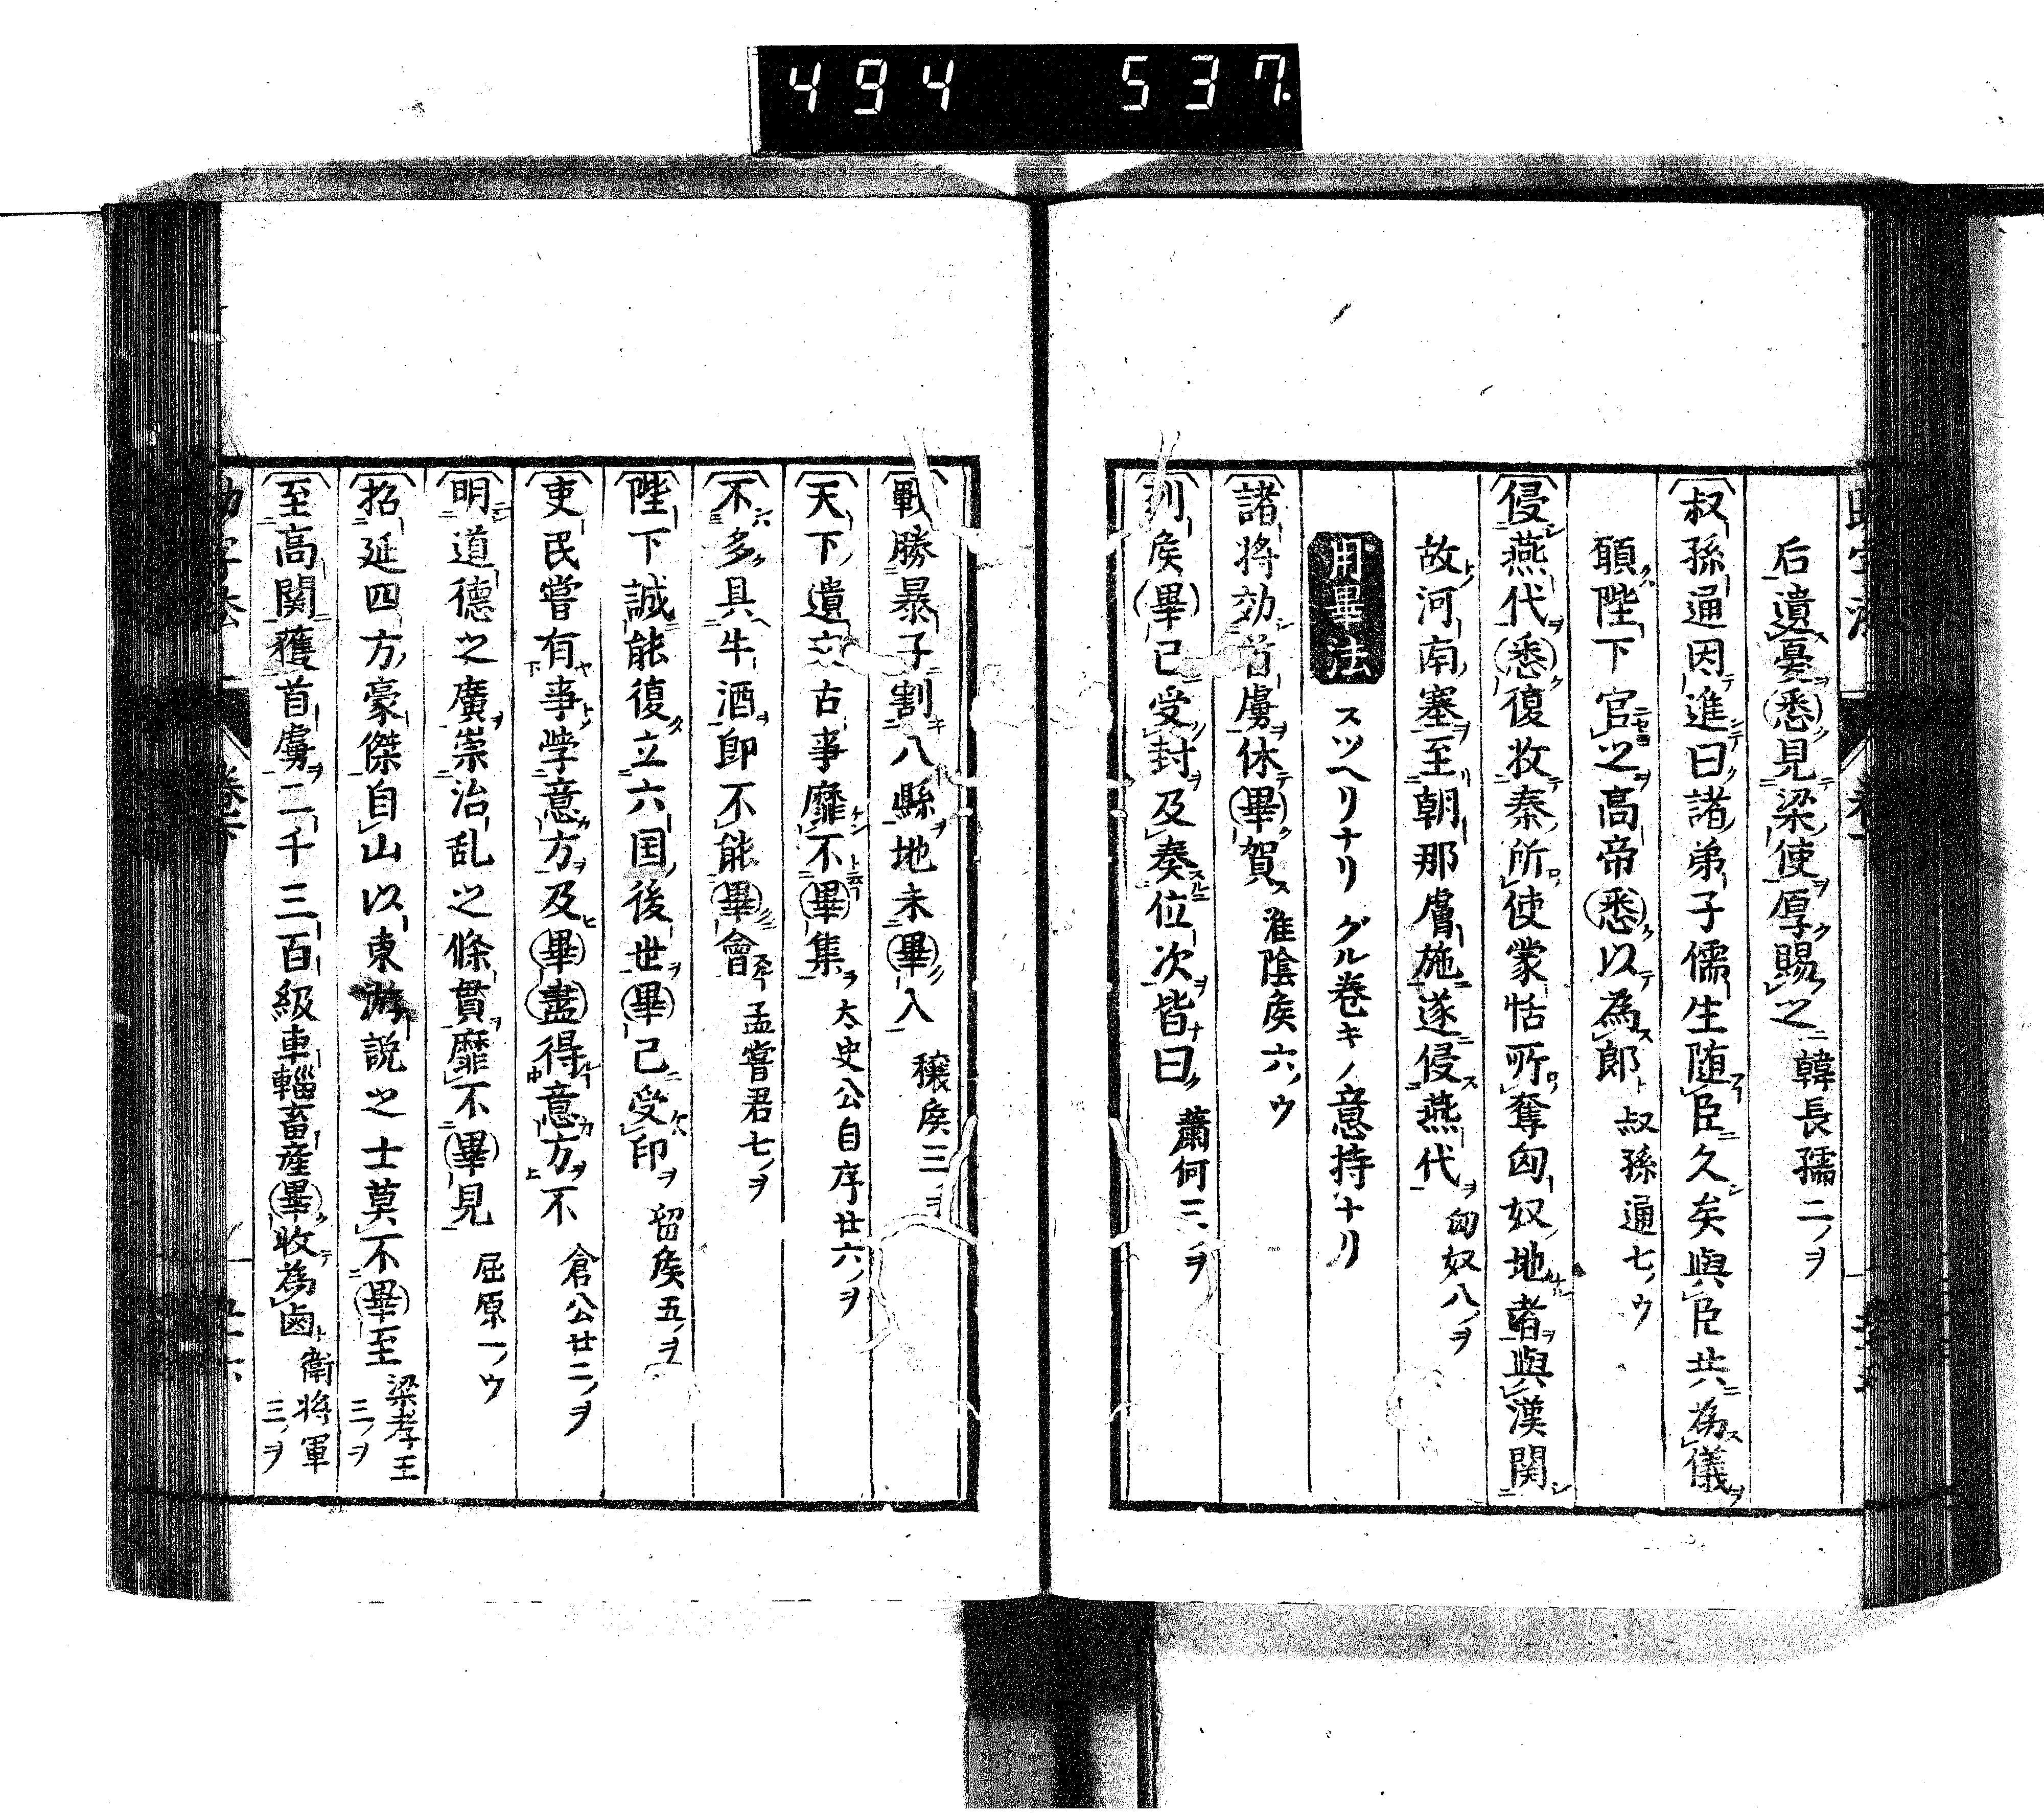 494 537
后遺憂悉見梁使厚賜之 韓長孺二ノヲ
叔孫通因進曰諸弟子儒生随臣久矣與臣共為儀
願陛下官之高帝悉以為郎 叔孫通七ノウ
侵燕代悉復收秦所使蒙恬所奪匈奴地者與漢関
故河南塞至朝那膚施遂侵燕代 匈奴八ノヲ
用畢法 スツヘリナリ グル巻キノ意持ナリ
諸将効首虜休畢賀 淮陰矦六ノウ
列矦畢已受封及奏位次皆曰 蕭何三ノヲ
戰勝暴子割八縣地未畢入 穣矦三ノヲ
天下遺文古事靡不畢集 太史公自序廿六ノヲ
不多具牛酒即不能畢會 孟嘗君七ノヲ
陛下誠能復立六国後世畢已受印 留矦五ノヲ
吏民嘗有事学意方及畢盡得意方不 倉公廿二ノヲ
明道德之廣崇治乱之條貫靡不畢見 屈原一ノウ
招延四方豪傑自山以東游説之士莫不畢至 梁孝王三ノヲ
至高関獲首虜二千三百級車輜畜産畢收為鹵 衛将軍三ノヲ